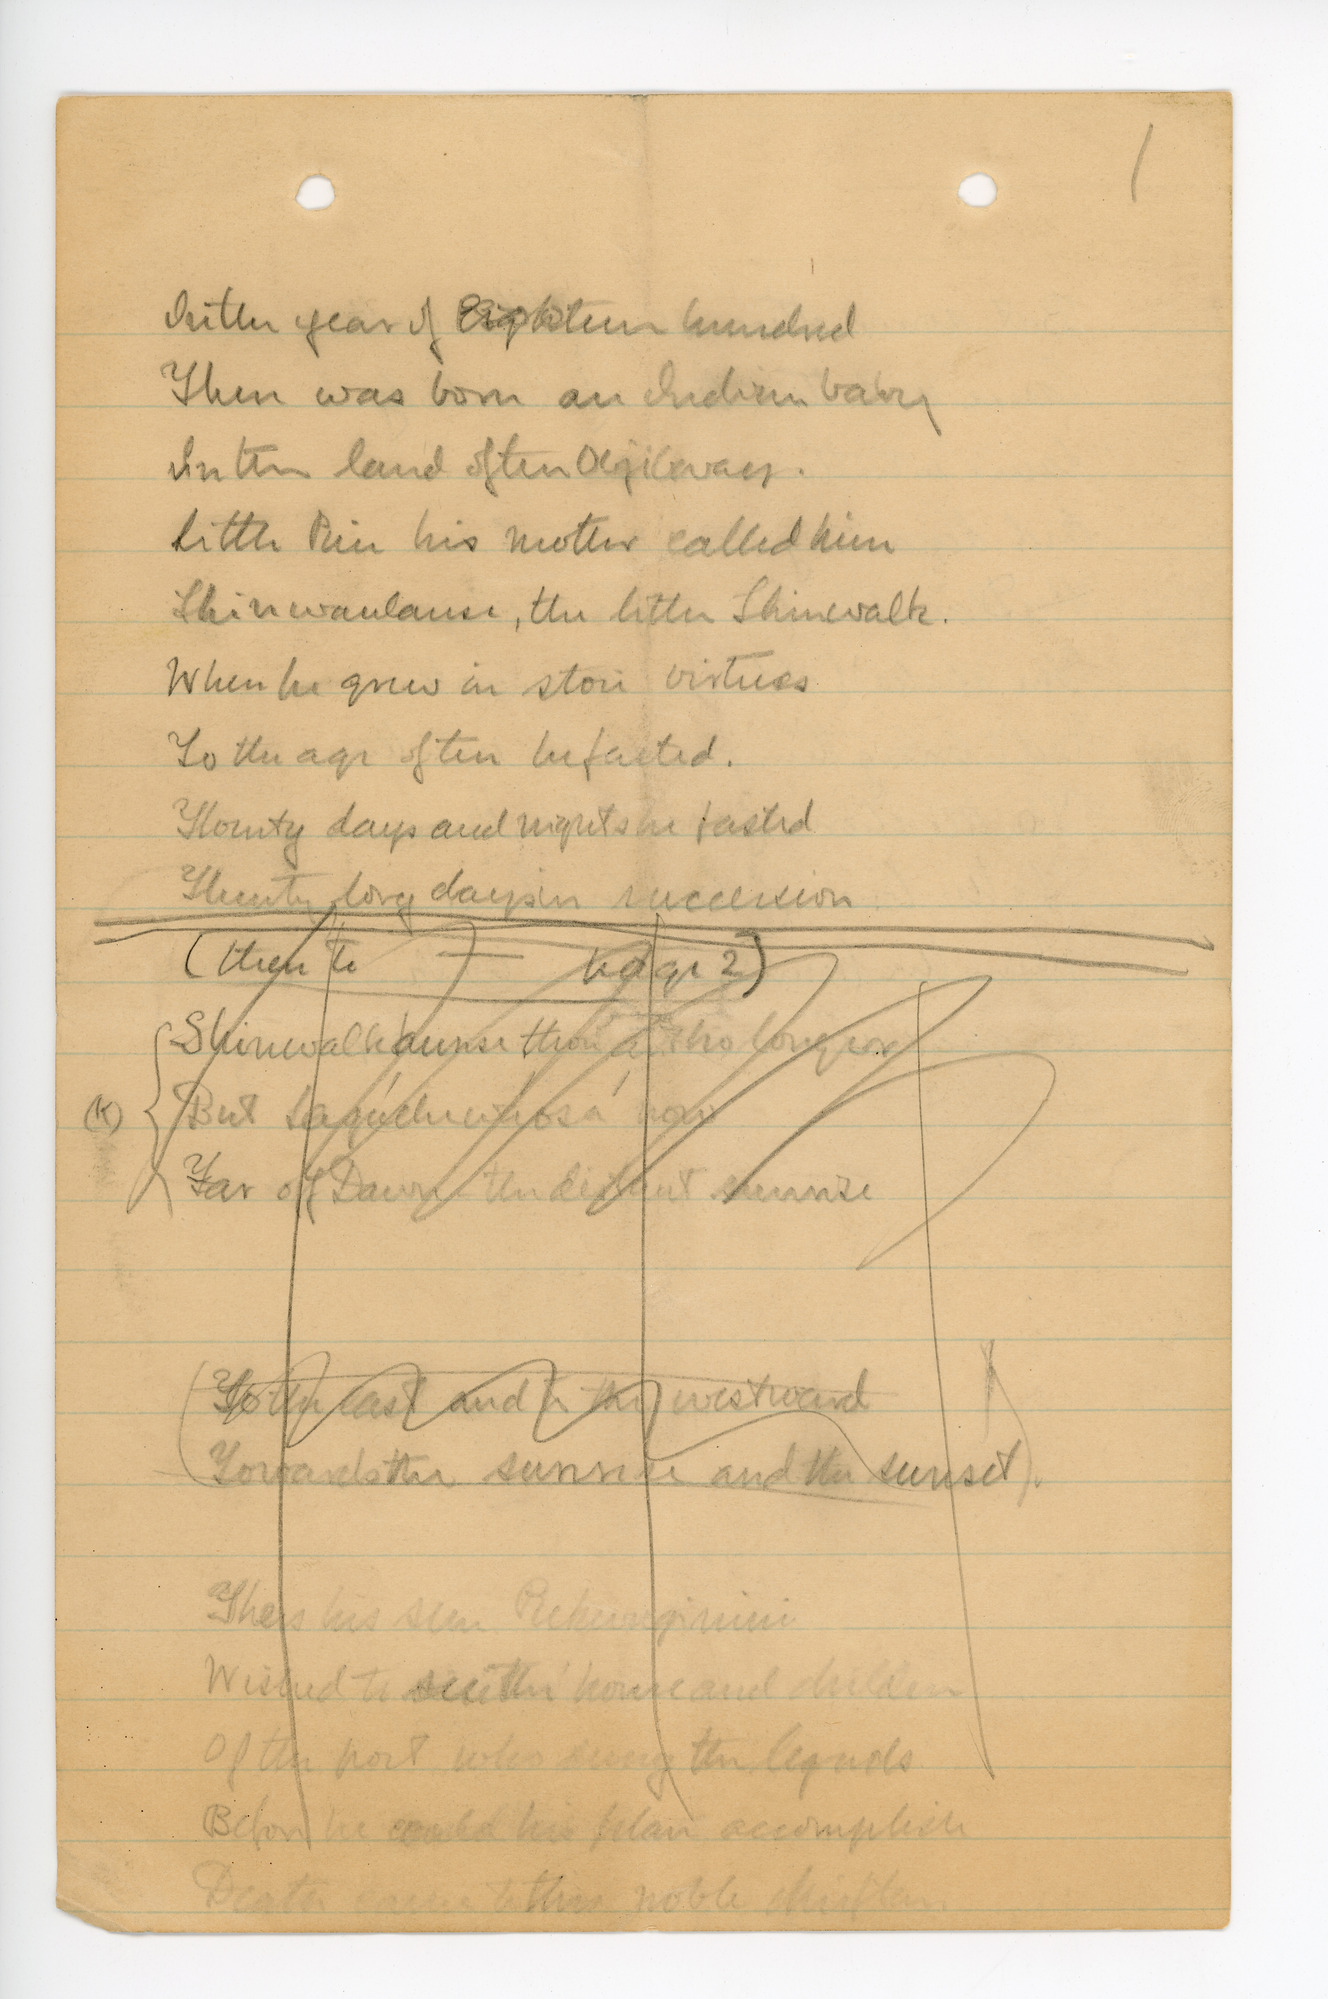 1
In the year of Eighteen hundred
There was born an Indian baby
In the land of the Ojibway.
Little his mother called him
the little Shinewalk.
When he grew in virtues
To the age of ten he fasted.
Twenty days and nights he fasted
Twenty long days in succession
(then to page 2)
Shinewalk no longer
(K)
But now
Far of Dawn the distant sunrise
To the east and to the westward
Towards the sunrise and the sunset).
his son
Wished to see the home and children
Of the poet who sung the legends
Before he could his plan accomplish
Death came to this noble chieftan